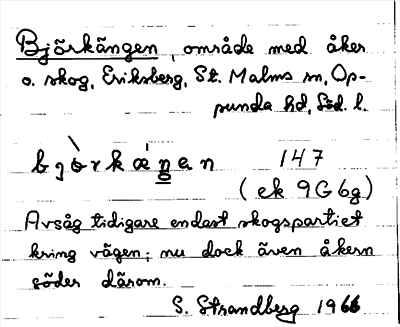 Björkängen, område med åker
o. skog, Eriksberg, St. Malms sn, Op-
punda hd, Söd. l.
bjòrkæ̀ŋen 147
(ek 9G 6g)
Avsåg tidigare endast skogspartiet
kring vägen; nu dock även åkern
söder därom.
S. Strandberg 1966